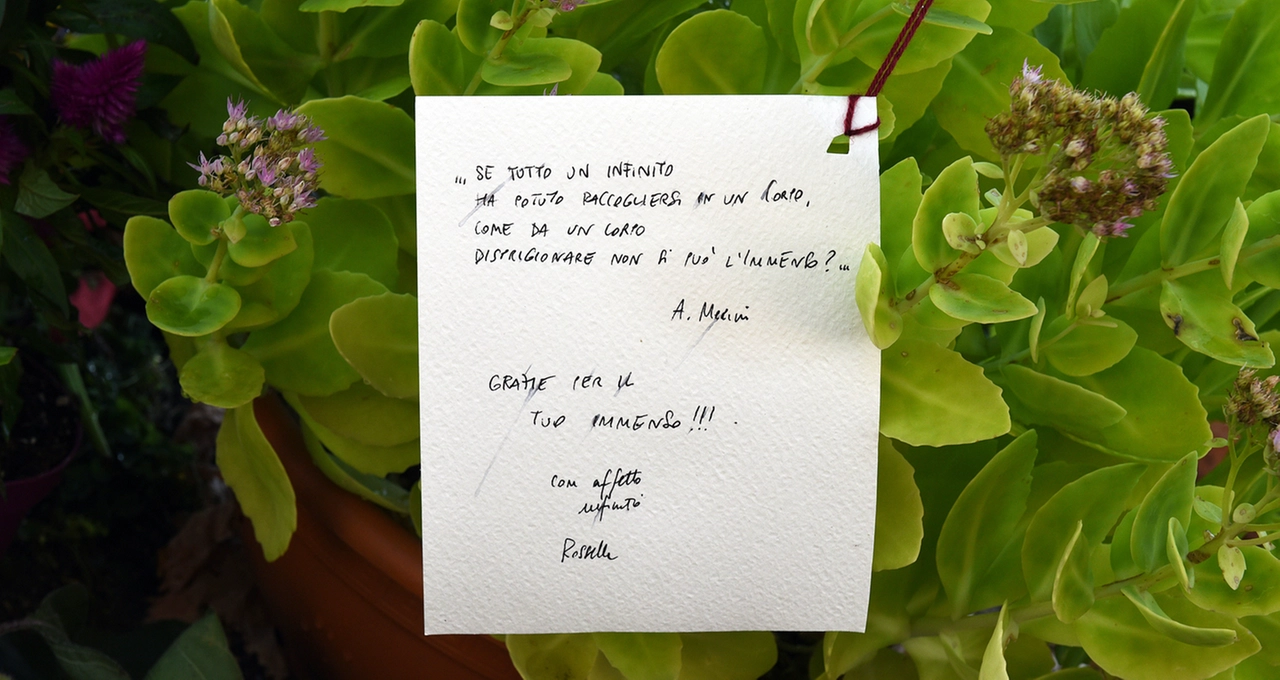 ... SE TUTTO UN INFINITO
HA POTUTO RACCOGLIERSI IN UN CORPO,
COME DA UN CORPO
DISPRIGIONARE NON SI PUÒ L'IMMENSO? ...
A. Merini
GRAZIE PER IL
TUO IMMENSO!!!
con affetto
infinito
Rossella